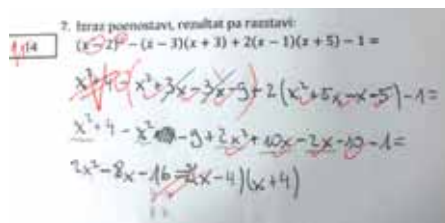 7. Izraz poenostavi, rezultat pa razstavi:
(x - 2)² - (x - 3)(x + 3) + 2(x - 1)(x + 5) - 1 =
x² + 4 - (x² + 3x - 3x - 9) + 2(x² + 5x - x - 5) - 1 =
x² + 4 - x² - 9 + 2x² + 10x - 2x - 10 - 1 =
2x² - 8x - 16 = (x - 4)(x + 4)